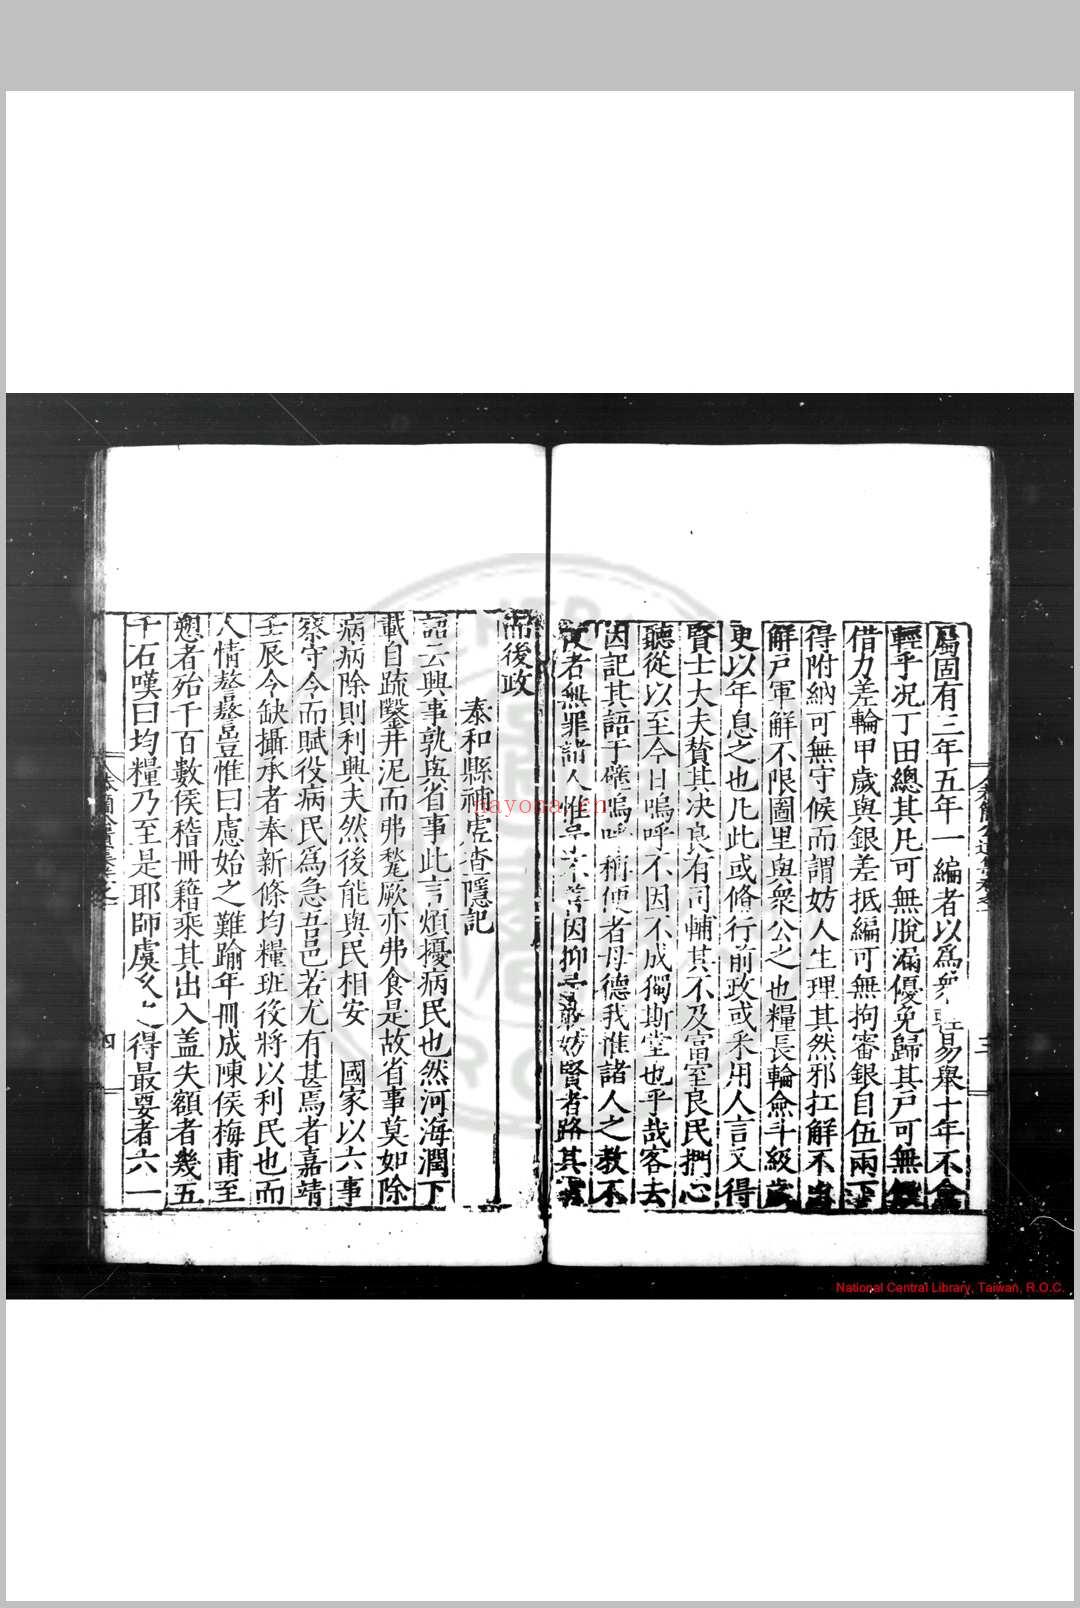 屬固有三年五年一編者以爲
易舉十年不
輕乎况丁田總其凡可無脫漏優免歸其戸可無
借力差輪甲歲與銀差抵編可無拘審銀自伍兩下
得附納可無守候而謂妨人生理其然邪扛解不
解戸軍解不限圖里與衆公之也糧長輪僉斗級歲
更以年息之也凡此或脩行前政或采用人言又得
賢士大夫賛其决良有司輔其不及富室良民捫心
聽從以至今日嗚呼不因不成獨斯堂也乎哉客去
因記其語于壁嗚呼稱使者母德我惟諸人之教不
使者無罪諸人惟
因仰
妨賢者路其
後政
泰和縣補虗查隱記
語云興事孰與省事此言煩擾病民也然河海潤下
載自疏鑿井泥而弗甃厥亦弗食是故省事莫如除
病病除則利興夫然後能與民相安 國家以六事
察守令而賦役病民爲急吾邑若尤有甚焉者嘉靖
壬辰令缺攝承者奉新條均糧班役將以利民也而
人情嗸嗸豈惟曰慮始之難踰年冊成陳侯梅甫至
愬者殆千百數侯稽冊籍乘其出入盖失額者幾五
千石嘆曰均糧乃至是耶師虞久之得最要者六一
三
四
National Central Library, Taiwan, R.O.C.
nayona.cn